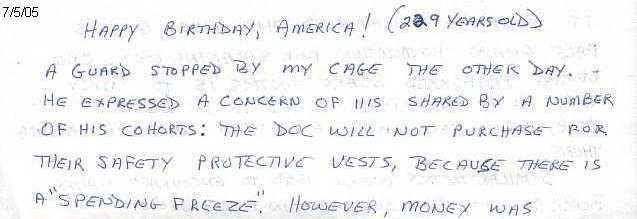 7/5/05
HAPPY BIRTHDAY, AMERICA! (229 YEARS OLD)
A GUARD STOPPED BY MY CAGE THE OTHER DAY.
HE EXPRESSED A CONCERN OF HIS, SHARED BY A NUMBER
OF HIS COHORTS: THE DOC WILL NOT PURCHASE FOR
THEIR SAFETY PROTECTIVE VESTS, BECAUSE THERE IS
A "SPENDING FREEZE." HOWEVER, MONEY WAS